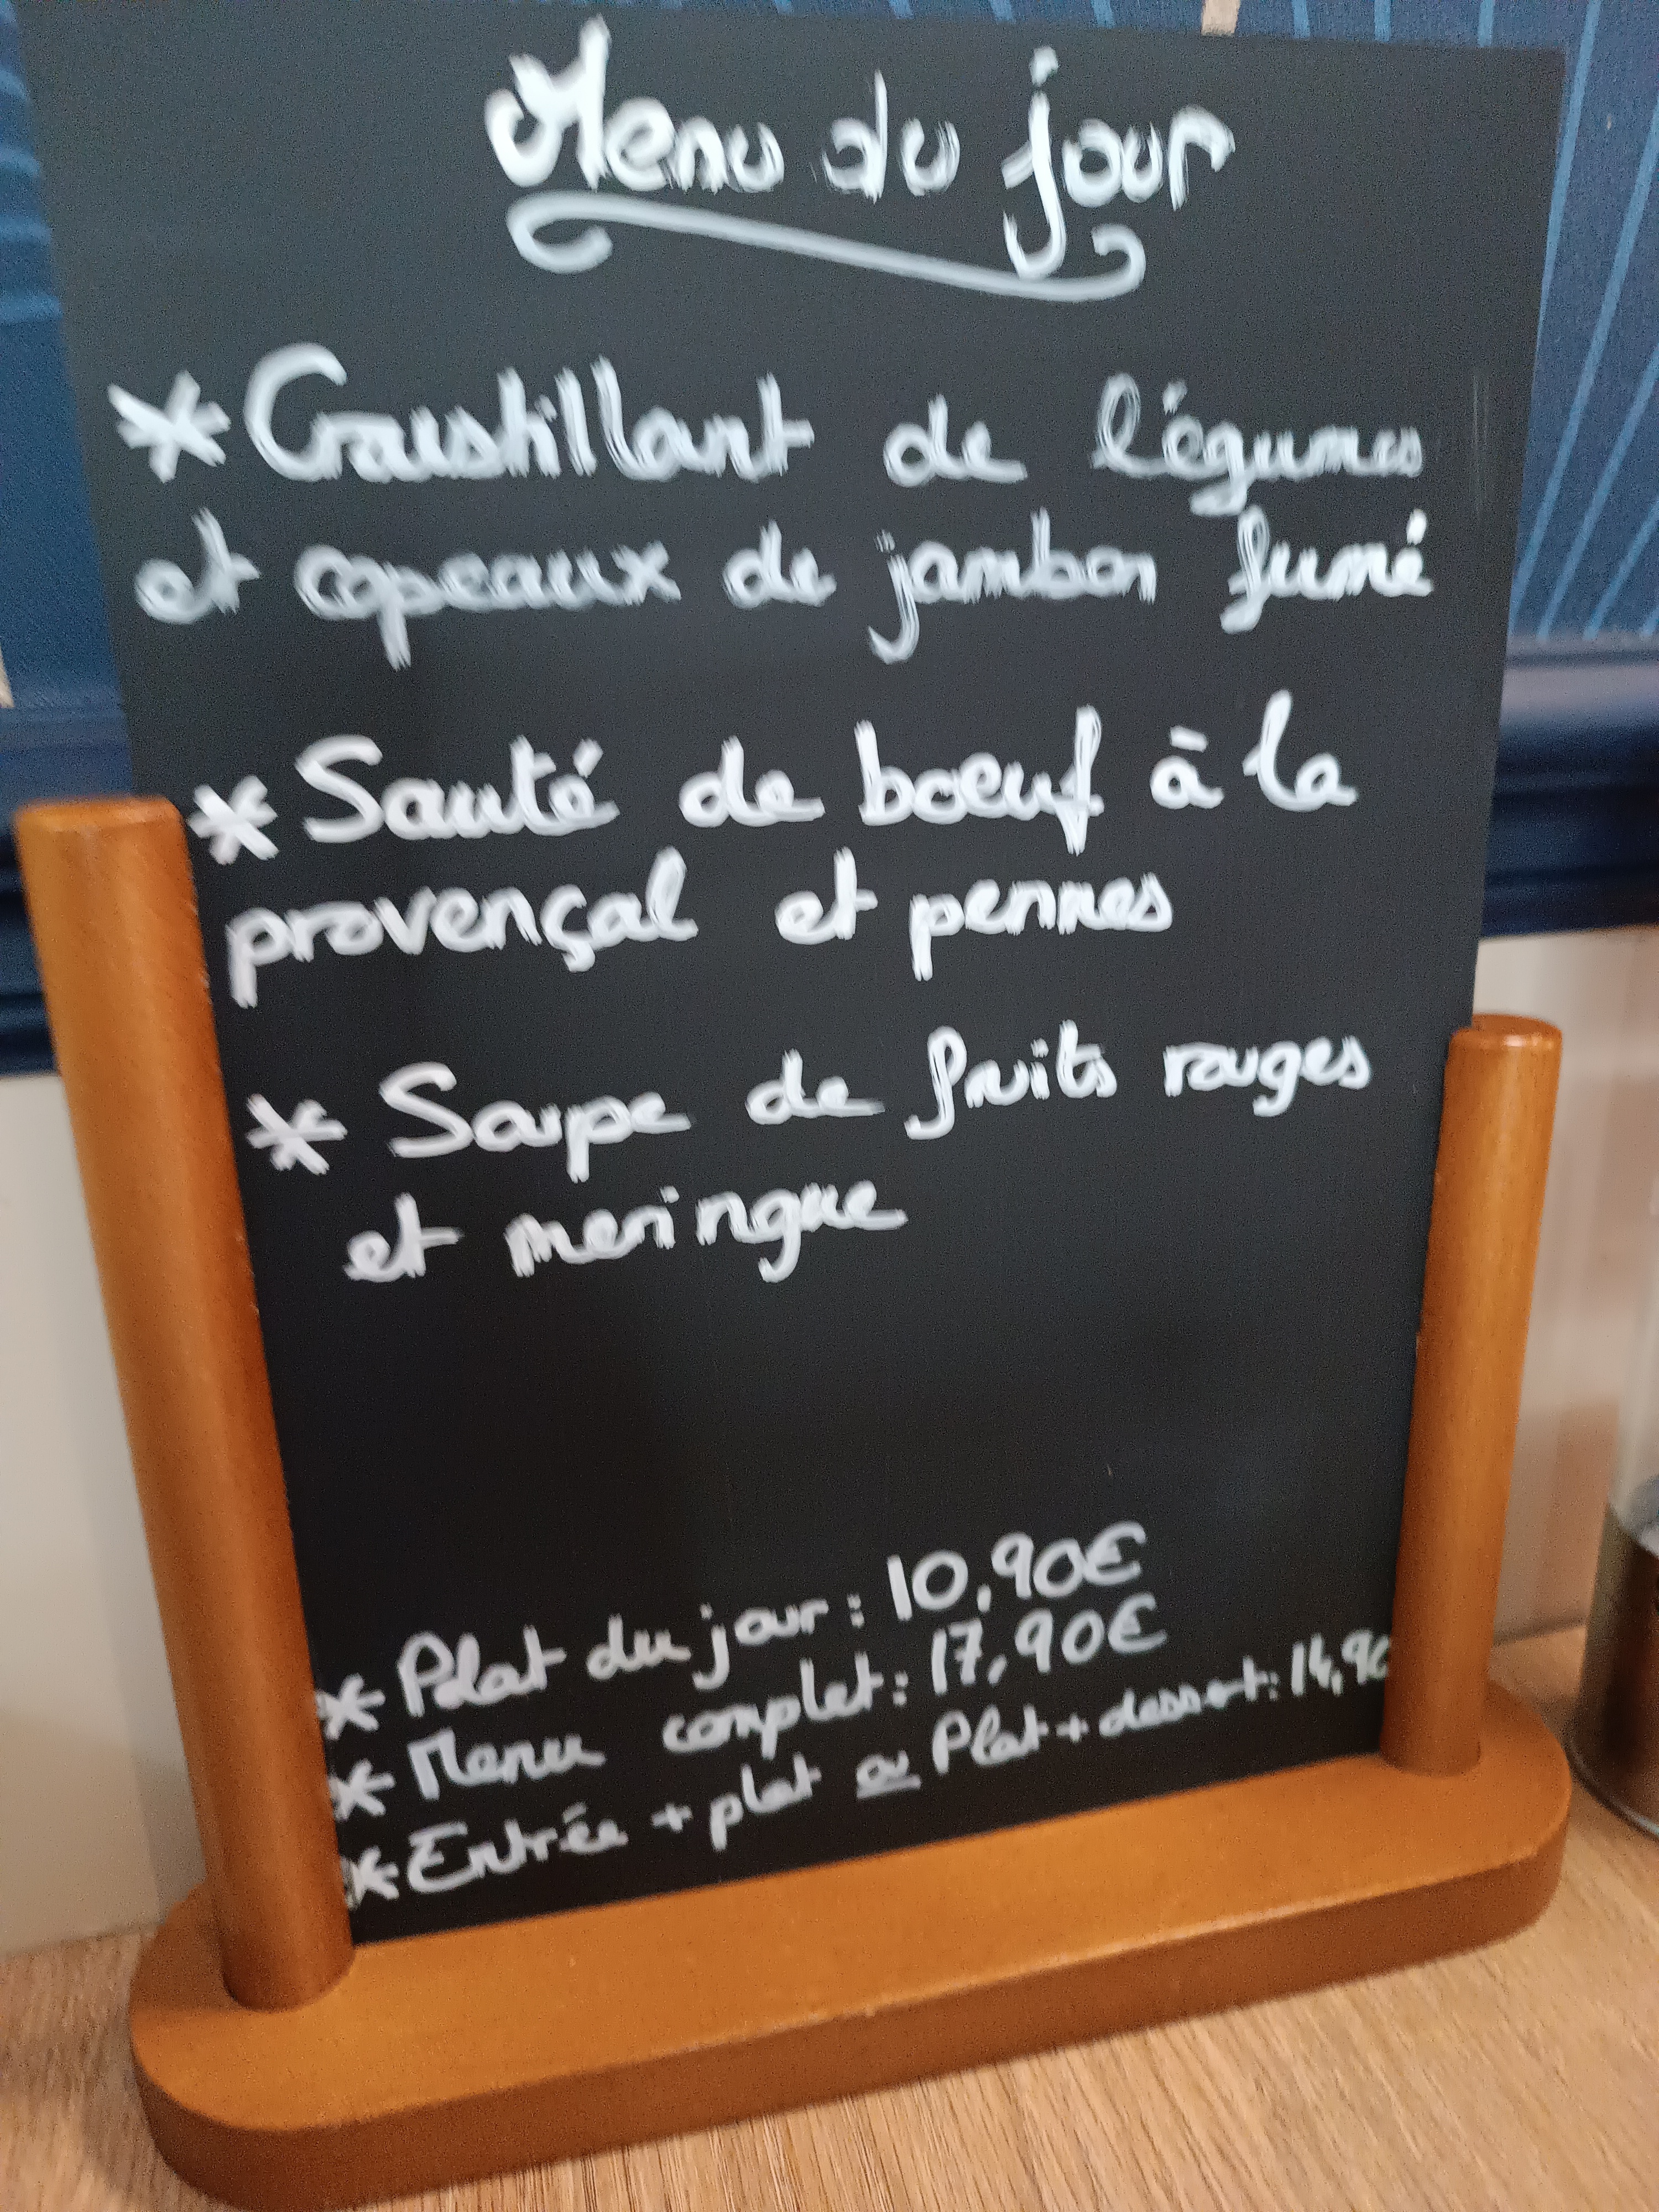 Menu du jour
* Croustillant de légumes
et copeaux de jambon fumé
* Sauté de boeuf à la
provençal et pennes
* Soupe de fruits rouges
et meringue
* Plat du jour : 10,90€
* Menu complet : 17,90€
* Entrée + plat ou Plat + dessert : 14,90